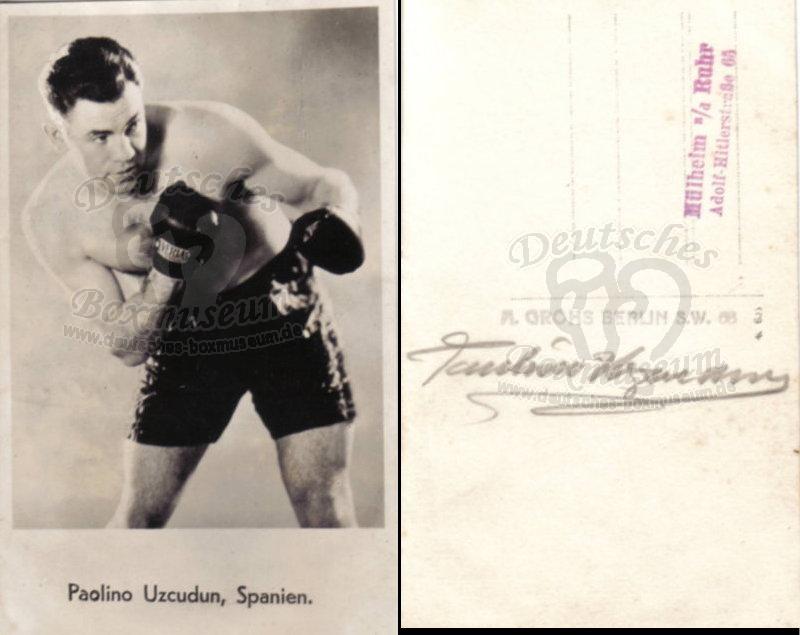 Deutsches
Boxmuseum
www.deutsches-boxmuseum.de
Paolino Uzcudun, Spanien.
Mülheim a/d Ruhr
Adolf-Hitlerstraße 65
Deutsches
A. GROHS BERLIN S.W. 68
Boxmuseum
www.deutsches-boxmuseum.de